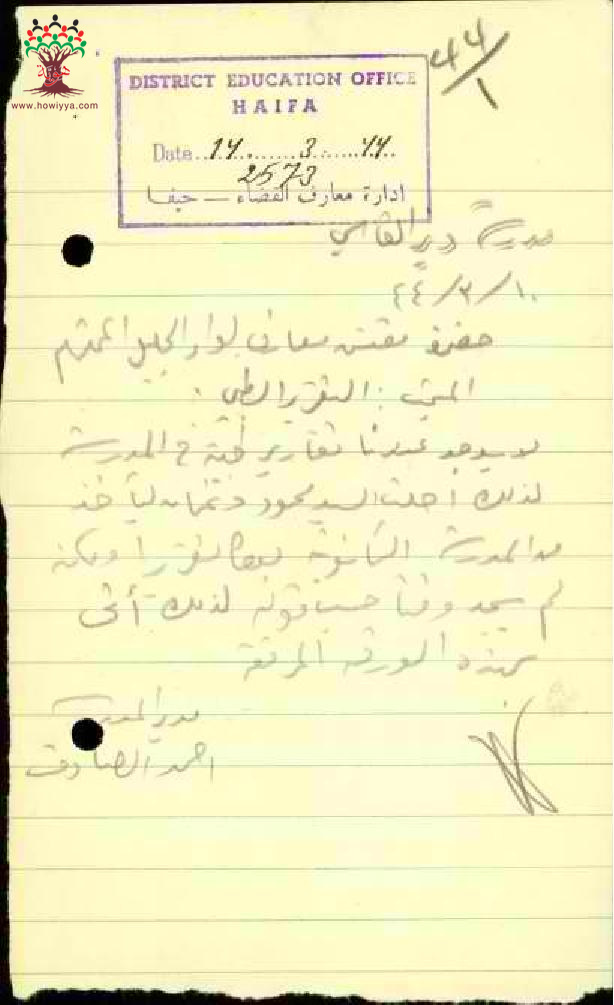 www.howiyya.com
44/1
DISTRICT EDUCATION OFFICE
HAIFA
Date..14........3.......44..
2573
ادارة معارف القضاء — حيفا
مدرسة دير القاسي
١٠/٣/٤٤
حضرة مفتش معارف لواء الجليل المحترم
التقرير الطبي :
لا يوجد عندنا تقارير طبية في المدرسة
لذلك السيد محمود
من المدرسة الثانوية ولكنه
لم يجد وقتا حسب قوله لذلك أتى
بهذه الورقة المرفقة
مدير المدرسة
احمد الصادق